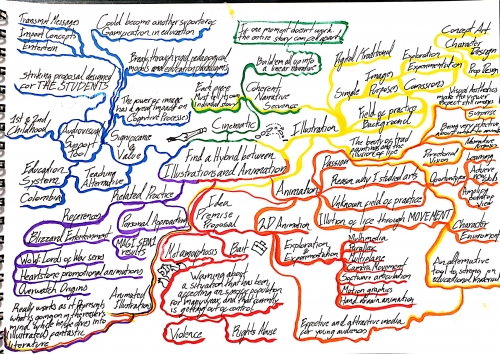 Transmit Messages
Impart Concepts
Entertain
Could become another supporter of
Gamification in education
Break through rigid pedagogical
models and education paradigms
Striking proposal designed
for THE STUDENTS
The power of image
has a great impact on
Cognitive Processes
1st & 2nd
Childhood
Audiovisual
Support
Tool
Significance
&
Value
Education
System
Colombia
Teaching
Alternative
If one moment doesn't work
the entire story can fall apart
Build em all up into
a linear narrative
Each piece
must tell its own
individual story
Coherent
Narrative
Sequence
Cinematic
Illustration
Digital/Traditional
Images
Simple
Purposes
Exploration
Experimentation
Commissions
Concept Art
Character
Design
Prop Design
Field of practice
Background
Visual Aesthetics
make the viewer
expect still images
Surprise
The beauty of traditional
and the
illusion of life
Find a Hybrid between
Illustrations and Animation
Idea
Premise
Proposal
Animation
Passion
Directorial Vision
Reason why I studied arts
Opportunities
Learning
Achieve
Unknown field of practice
Illusion of life through MOVEMENT
Character
Environment
An alternative
tool to strong
educational material
2D Animation
Exploration
&
Experimentation
Multimedia
Parallax
Multiplane
Camera Movement
Software articulation
Motion graphics
Hand drawn animation
Effective and attractive media
for young audiences
Related Practice
References
Personal Approach
MAGI SEM2
results
Blizzard Entertainment
WoW Lords of War series
Hearthstone promotional animations
Overwatch Origins
Animated
Illustrations
Really works as it portrays
what is going on in the readers
mind while he dives into
illustrated fantastic
literature
Metamorphosis
Past
Warning about
a situation that has been
affecting an small population
for many year, and that currently
is getting out of control
Violence
Rights Abuse